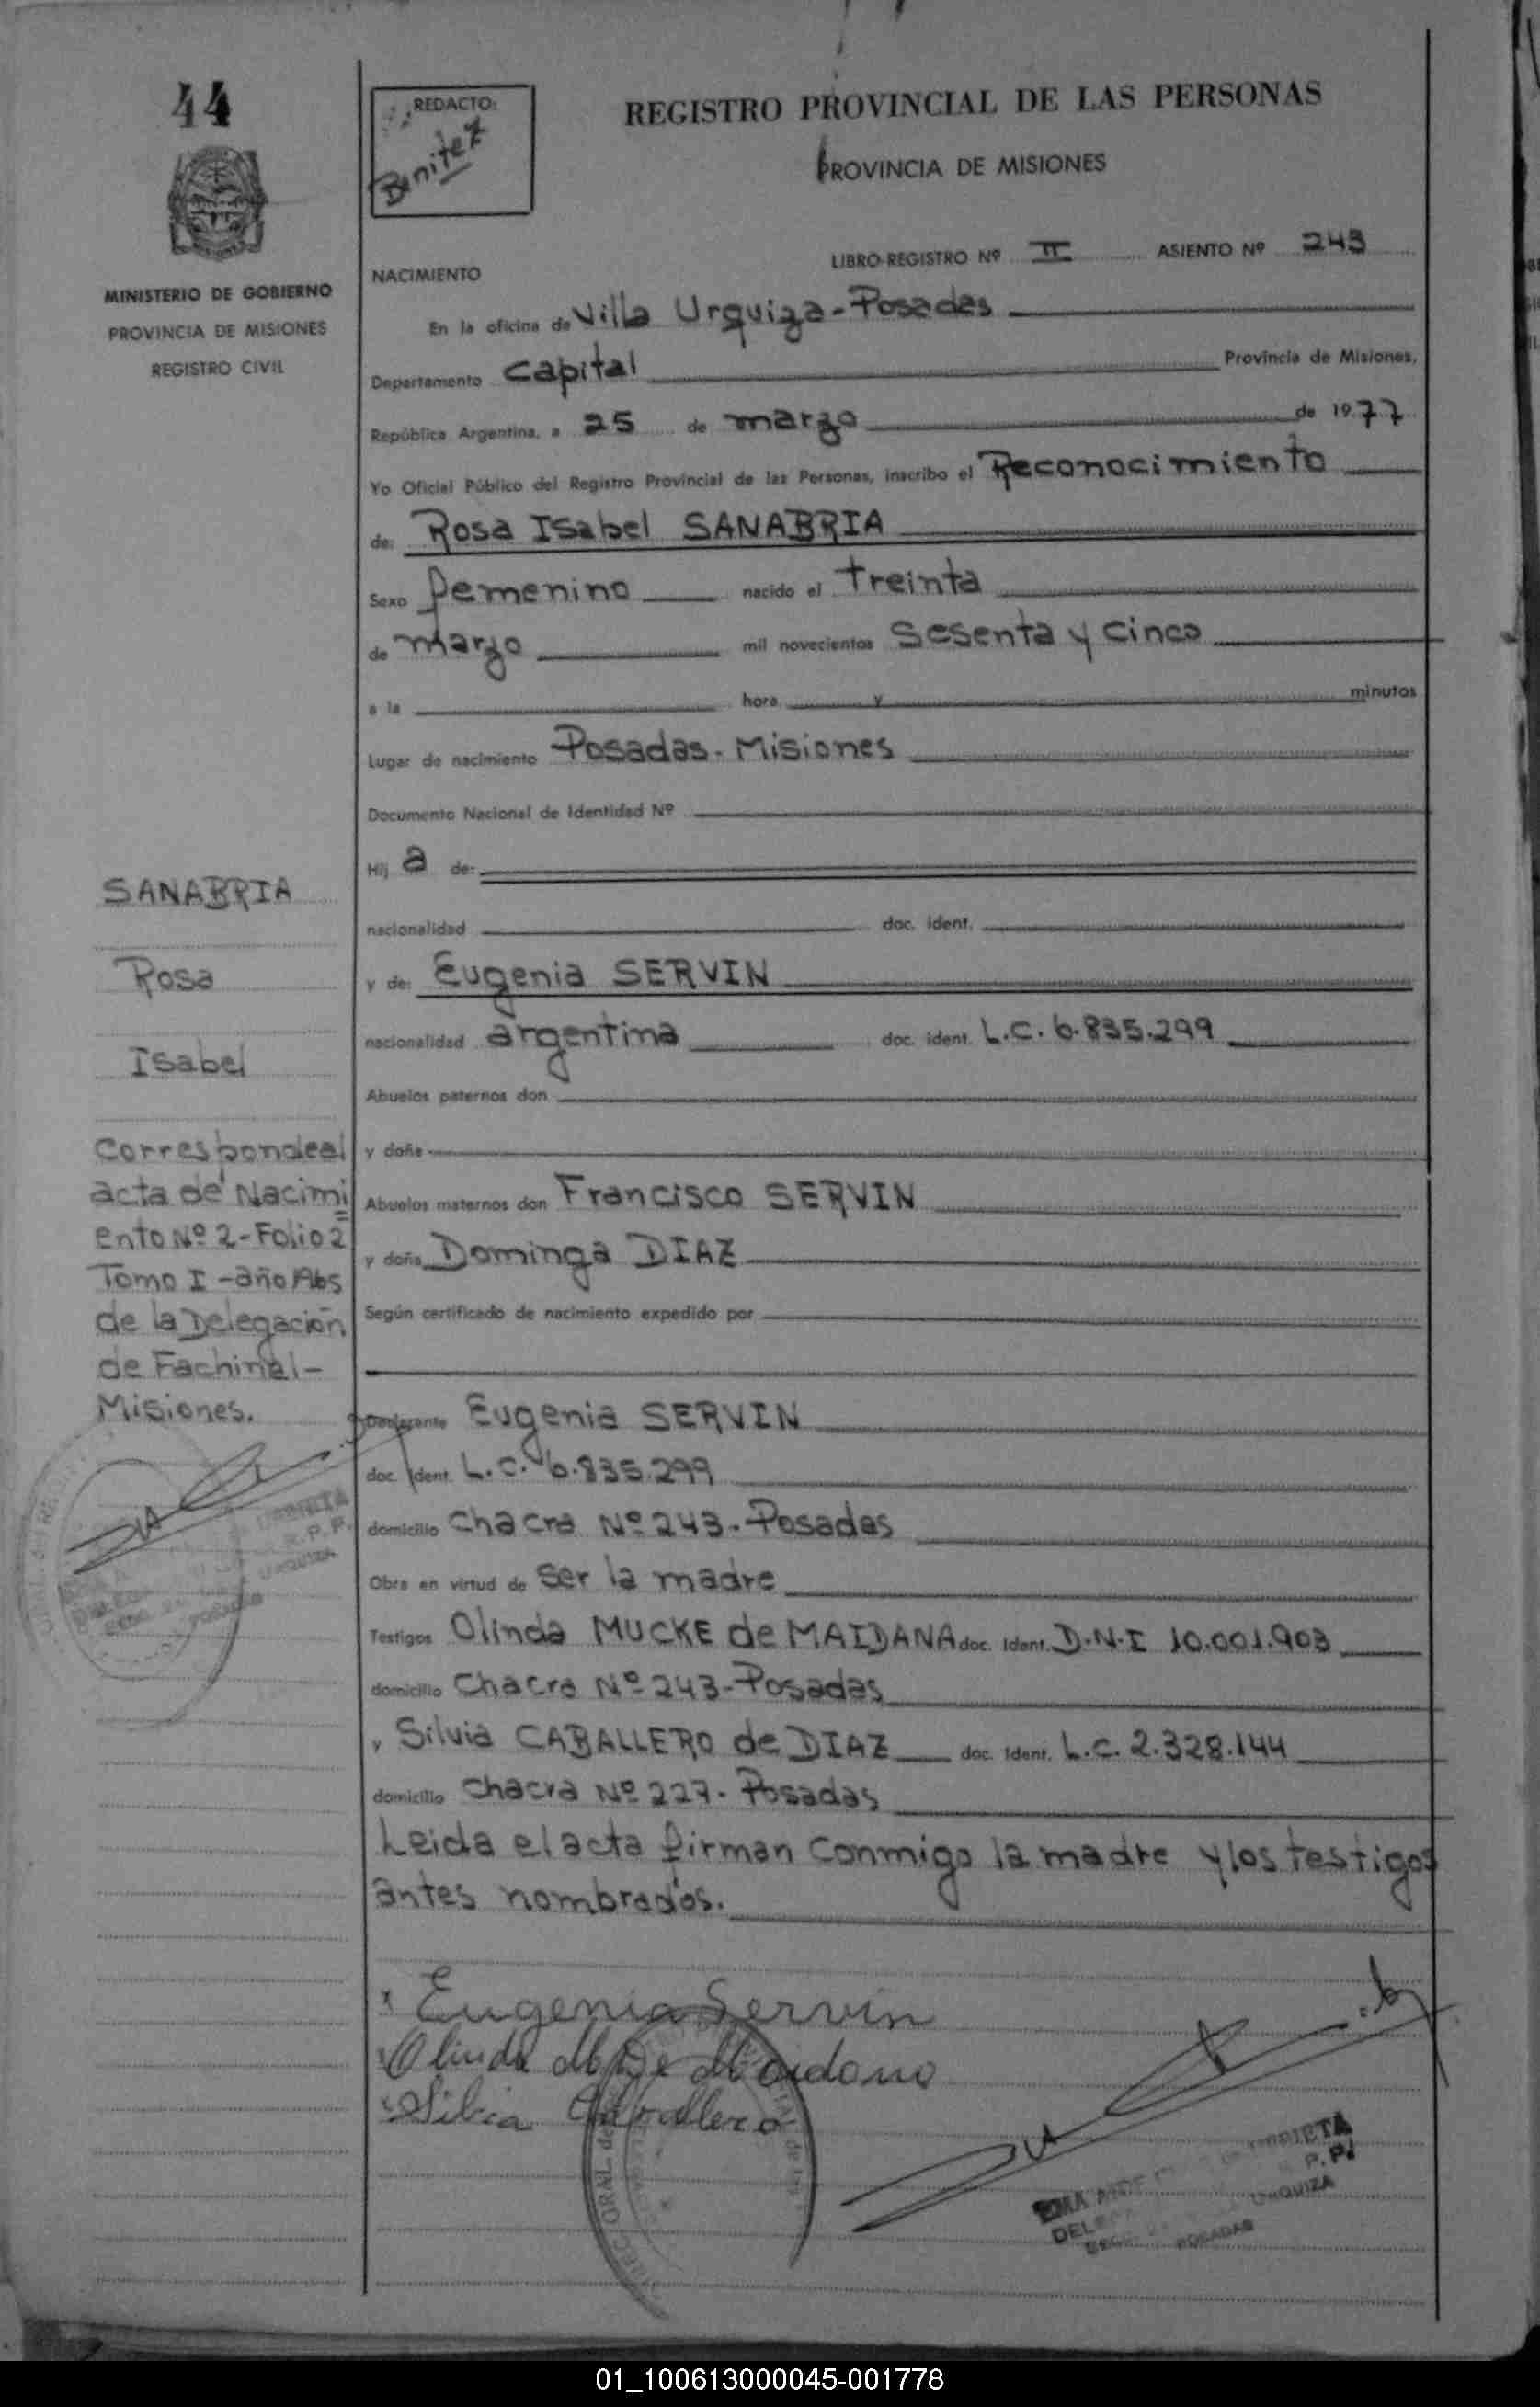 44
REDACTO:
Benitez
REGISTRO PROVINCIAL DE LAS PERSONAS
PROVINCIA DE MISIONES
MINISTERIO DE GOBIERNO
PROVINCIA DE MISIONES
REGISTRO CIVIL
LIBRO-REGISTRO Nº II ASIENTO Nº 243
NACIMIENTO
En la oficina de Villa Urquiza - Posadas
Departamento Capital Provincia de Misiones,
República Argentina, a 25 de marzo de 1977
Yo Oficial Público del Registro Provincial de las Personas, inscribo el Reconocimiento
de: Rosa Isabel SANABRIA
Sexo femenino nacido el treinta
de marzo mil novecientos sesenta y cinco
a la hora y minutos
Lugar de nacimiento Posadas - Misiones
Documento Nacional de Identidad Nº
Hij a de:
nacionalidad doc. ident.
y de: Eugenia SERVIN
nacionalidad argentina doc. ident. L.C. 6.835.299
Abuelos paternos don
y doña
Abuelos maternos don Francisco SERVIN
y doña Dominga DIAZ
Según certificado de nacimiento expedido por
Declarante Eugenia SERVIN
doc. ident. L.C. 6.835.299
domicilio Chacra Nº 243 - Posadas
Obra en virtud de ser la madre
Testigos Olinda MUCKE de MAIDANA doc. ident. D.N.I 10.001.903
domicilio Chacra Nº 243 - Posadas
y Silvia CABALLERO de DIAZ doc. ident. L.C. 2.328.144
domicilio Chacra Nº 227 - Posadas
Leida el acta firman conmigo la madre y los testigos
antes nombrados.
SANABRIA
Rosa
Isabel
Corresponde al
acta de Nacimi
ento Nº 2 - Folio 2
Tomo I - año Abs
de la Delegación
de Fachinal -
Misiones.
URQUIZA
POSADAS
Eugenia Servin
Olinda M De Maidana
Silvia Caballero
P.P.
URQUIZA
POSADAS
01_100613000045-001778